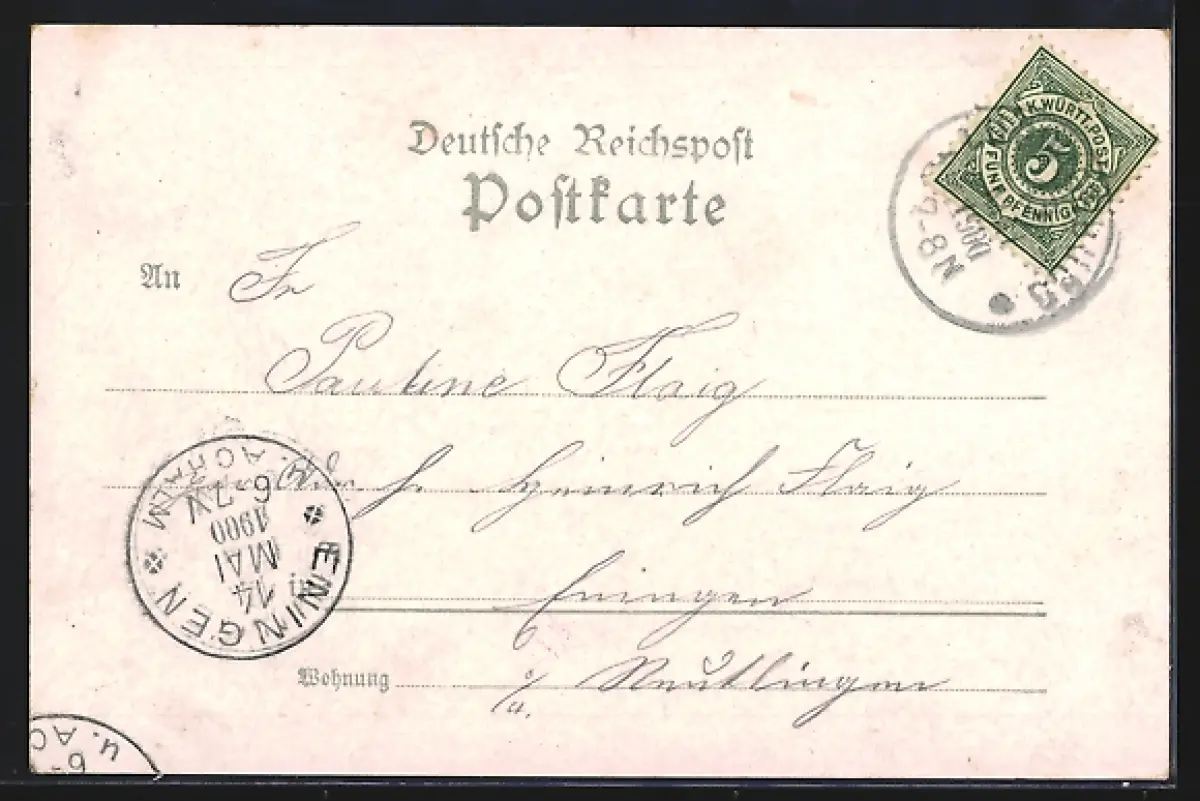 Deutsche Reichspost
Postkarte
K.WÜRTT.POST
5
FÜNF PFENNIG
1900
-8N
An Fr
Pauline Flaig
H. Heinrich Flaig
in Eningen
Wohnung o/a. Reutlingen
ENINGEN
14
MAI
1900
6-7V
U. ACHALM
6-
U. AC